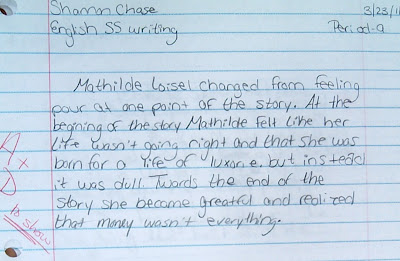 Shannon Chase 3/23/11
English SS writing Period-9
Mathilde Loisel changed from feeling
pour at one point of the story. At the
begining of the story Mathilde felt like her
A Life wasn't going right and that she was
x born for a life of luxorie. but instead
D it was dull. Twords the end of the
to show story she became greatful and realized
that money wasn't everything.